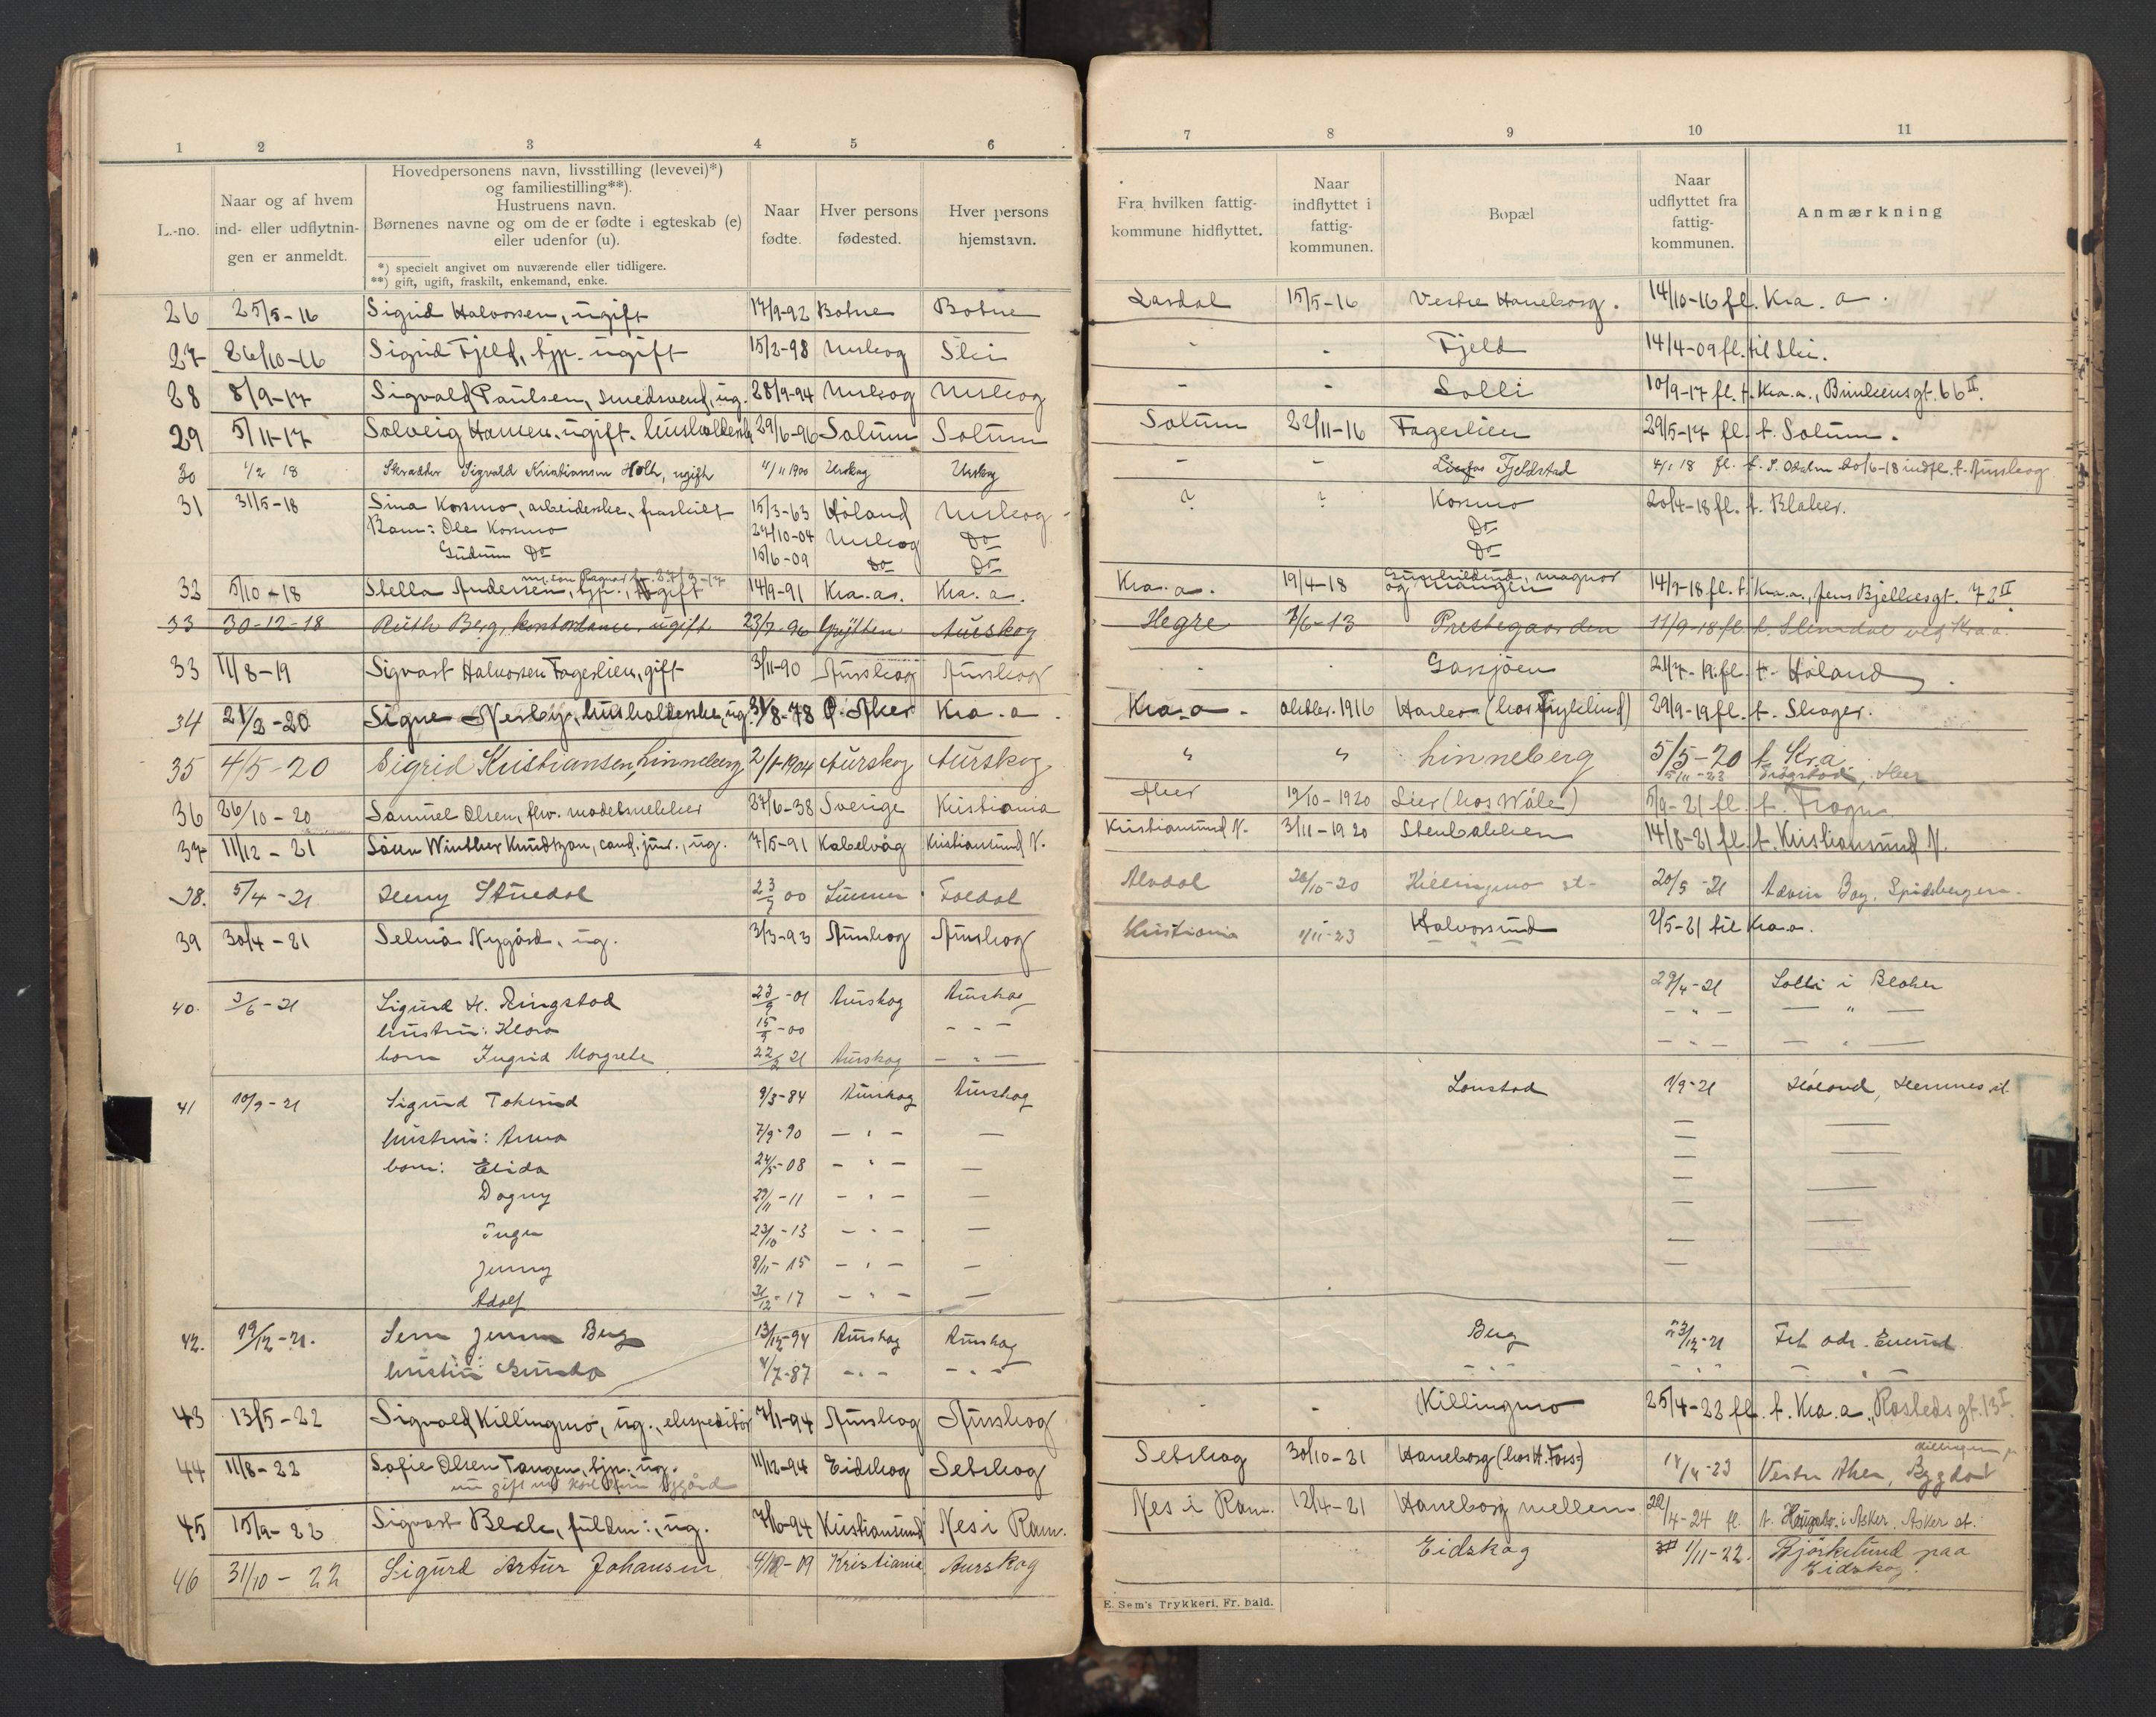 1 2 3 4 5 6
L.-no.
Naar og af hvem
ind- eller udflytnin-
gen er anmeldt.
Hovedpersonens navn, livsstilling (levevei)*)
og familiestilling**).
Hustruens navn.
Børnenes navne og om de er fødte i egteskab (e)
eller udenfor (u).
*) specielt angivet om nuværende eller tidligere.
**) gift, ugift, fraskilt, enkemand, enke.
Naar
fødte.
Hver persons
fødested.
Hver persons
hjemstavn.
26 25/5-16 Sigrid Halvorsen, ugift 17/9-92 Botne Botne
27 26/10-16 Sigrid Fjeld, tjp. ugift 15/2-98 Urskog Ski
28 8/9-17 Sigvald Paulsen, smedsvend, ug. 28/9-94 Urskog Urskog
29 5/11-17 Solveig Hansen, ugift. husholderske 29/6-96 Solum Solum
30 1/2 18 Skrædder Sigvald Kristiansen Holth, ugift 4/11 1900 Urskog Urskog
31 31/5-18 Sina Kosmo, arbeiderske, fraskilt 15/3-63 Høland Urskog
Barn: Ole Kosmo 24/10-04 Urskog Do
Gudrun Do 15/6-09 Do Do
32 5/10-18 Stella Andersen, tjp., ugift 14/9-91 Kra.a. Kra.a.
33 30-12-18 Ruth Berg, kontordame, ugift 23/7-96 Grytten Aurskog
33 11/8-19 Sigvart Halvorsen Fagerlien, gift 3/11-90 Aurskog Aurskog
34 21/2-20 Signe Nesby, husholderske, ug. 31/8-78 Ø. Aker Kra.a.
35 4/5-20 Sigrid Kristiansen, Linneberg 2/1-1904 Aurskog Aurskog
36 26/10-20 Samuel Olsen, flv. modelsnekker 27/6-38 Sverige Kristiania
37 11/12-21 Søren Winther Knudtzon, cand. jur., ug. 7/5-91 Kabelvåg Kristiansund N.
38. 5/4-21 Henry Stuedal 23/7 00 Foldal
39 30/4-21 Selma Nygård, ug. 3/3-93 Aurskog Aurskog
40. 3/6-21 Sigurd H. Ringstad 23/9-01 Aurskog Aurskog
hustru: Klara 15/9-00 - - -
barn Ingrid Margrete 22/2 21 Aurskog - " -
41 10/9-21 Sigurd Tokerud 9/3-84 Aurskog Aurskog
hustru: Anna 7/9-90 - " - -
barn: Elida 24/5-08 - " - -
Dagny 29/11-11 - " - -
Inger 23/10-13 - " - -
Jenny 8/11-15 - " - -
Adolf 31/12-17 - " - -
42. 19/12-21. Jensen Berg 13/12-94 Aurskog Aurskog
hustru: Gunda 4/7-87 - " - - " -
43 13/5-22 Sigvald Killingmo, ug., ekspeditør 7/1-94 Aurskog Aurskog
44 11/8-22 Sofie Olsen Tangen, tjp. ug. 11/12-94 Eidskog Setskog
nu gift m/ Nygård
45 15/9-22 Sigvart Bekk, fuldm:, ug. 7/10-94 Kristiansund Nes i Rom.
46 31/10-22 Sigurd Artur Johansen 4/10-09 Kristiania Aurskog
7 8 9 10 11
Fra hvilken fattig-
kommune hidflyttet.
Naar
indflyttet i
fattig-
kommunen.
Bopæl
Naar
udflyttet fra
fattig-
kommunen.
Anmærkning
Lardal 15/5-16 Vestre Haneborg. 14/10-16 fl. Kra.a.
- - Fjeld 14/4-09 fl. til Ski.
- - Solli 10/9-17 fl. t. Kra.a., 66 II.
Solum 22/11-16 Fagerlien 29/5-17 fl. t. Solum.
- - Fjeldstad 4/1 18 fl. t. 20/6-18 indfl. t. Aurskog
? ? Kosmo 20/4-18 fl. t. Blaker.
Do
Do
Kra.a. 19/4-18 Magnor og Mangen 14/9-18 fl. t. Kra.a., Jens Bjelkesgt. 72 II
Hegre 7/6-13 Prestegaarden 11/9-18 fl. t. Slemdal ved Kra.a.
- - Gasjøen 21/7-19. fl t. Høland.
Kra.a. oktober. 1916 29/9-19 fl. t. Skoger.
" " Linneberg 5/5-20 t. Kra.
5/11-23
Aker 19/10-1920 Lier (hos Wåle) 5/9-21 fl. t. Frogn
Kristiansund N. 3/11-1920 Stenbakken 14/8-21 fl. t. Kristiansund N.
Alvdal 26/10-20 Killingmo st. 20/5-21 Advin Bay, Spidsbergen.
Kristiania 1/11-23 Halvorsrud 2/5-21 til Kra.a.
29/4-21 Solli i Blaker
- " - - " -
- " - - " -
Lonstad 1/9-21 Høland, Hemnes st.
Berg 23/12-21
- " - - " -
- - Killingmo 25/4-22 fl. t. Kra.a., Rostedsgt. 13 I.
Setskog 30/10-21 Haneborg (hos H. Foss) 14/4-23 Vestre Aker, Bygdø
Nes i Rom. 12/4-21 Haneborg mellem 22/4-24 fl. t. i Asker. Asker st.
Eidskog 1/11-22. Bjørkelund paa
Eidskog.
E. Sem's Trykkeri, Fr. hald.
T
U
V